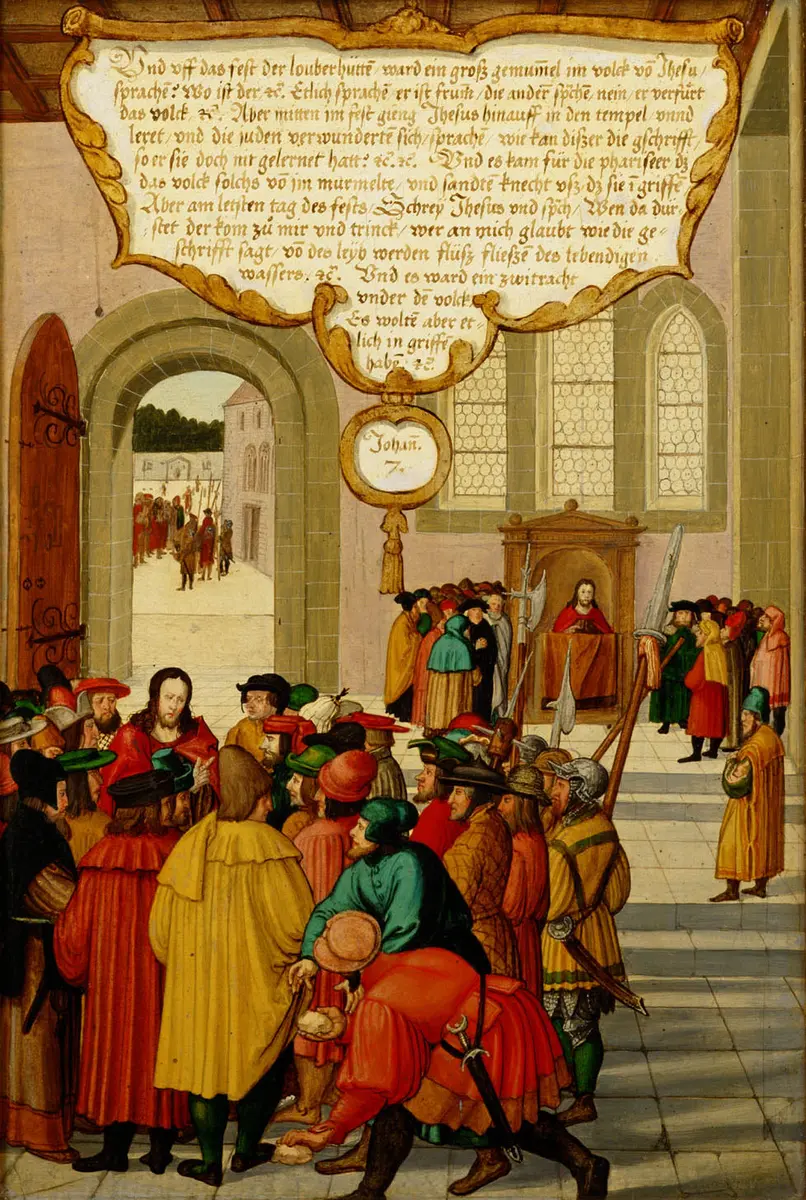 Und uff das fest der louberhüttē / ward ein groß gemum̄el im volck vō Jhesu /
sprachē? wo ist der ꝛc. Etlich sprachē er ist frum̄ / die anderē spchē nein / er verfürt
das volck / ꝛc. Aber mitten im fest gieng Jhesus hinauff in den tempel / vnnd
leret / vnd die juden verwundertē sich / sprachē / wie kan diszer die gschrifft /
so er sie doch nit gelernet hatt? ꝛc. ꝛc. Vnd es kam für die phariseer dz
das volck solchs vō im murmelte / vnd sandtē knecht vsz / dz sie ī griffē
Aber am letsten tag des fests / Schrey Jhesus vnd spch / Wen da dür-
stet der kom zů mir vnd trinck / wer an mich glaubt wie die ge-
schrifft sagt / vō des leyb werden flüsz fließen des lebendigen
wassers. ꝛc. Vnd es ward ein zwitracht
vnder dē volck
Es woltē aber et-
lich in griffē
habē. ꝛc.
Johan̄.
7.